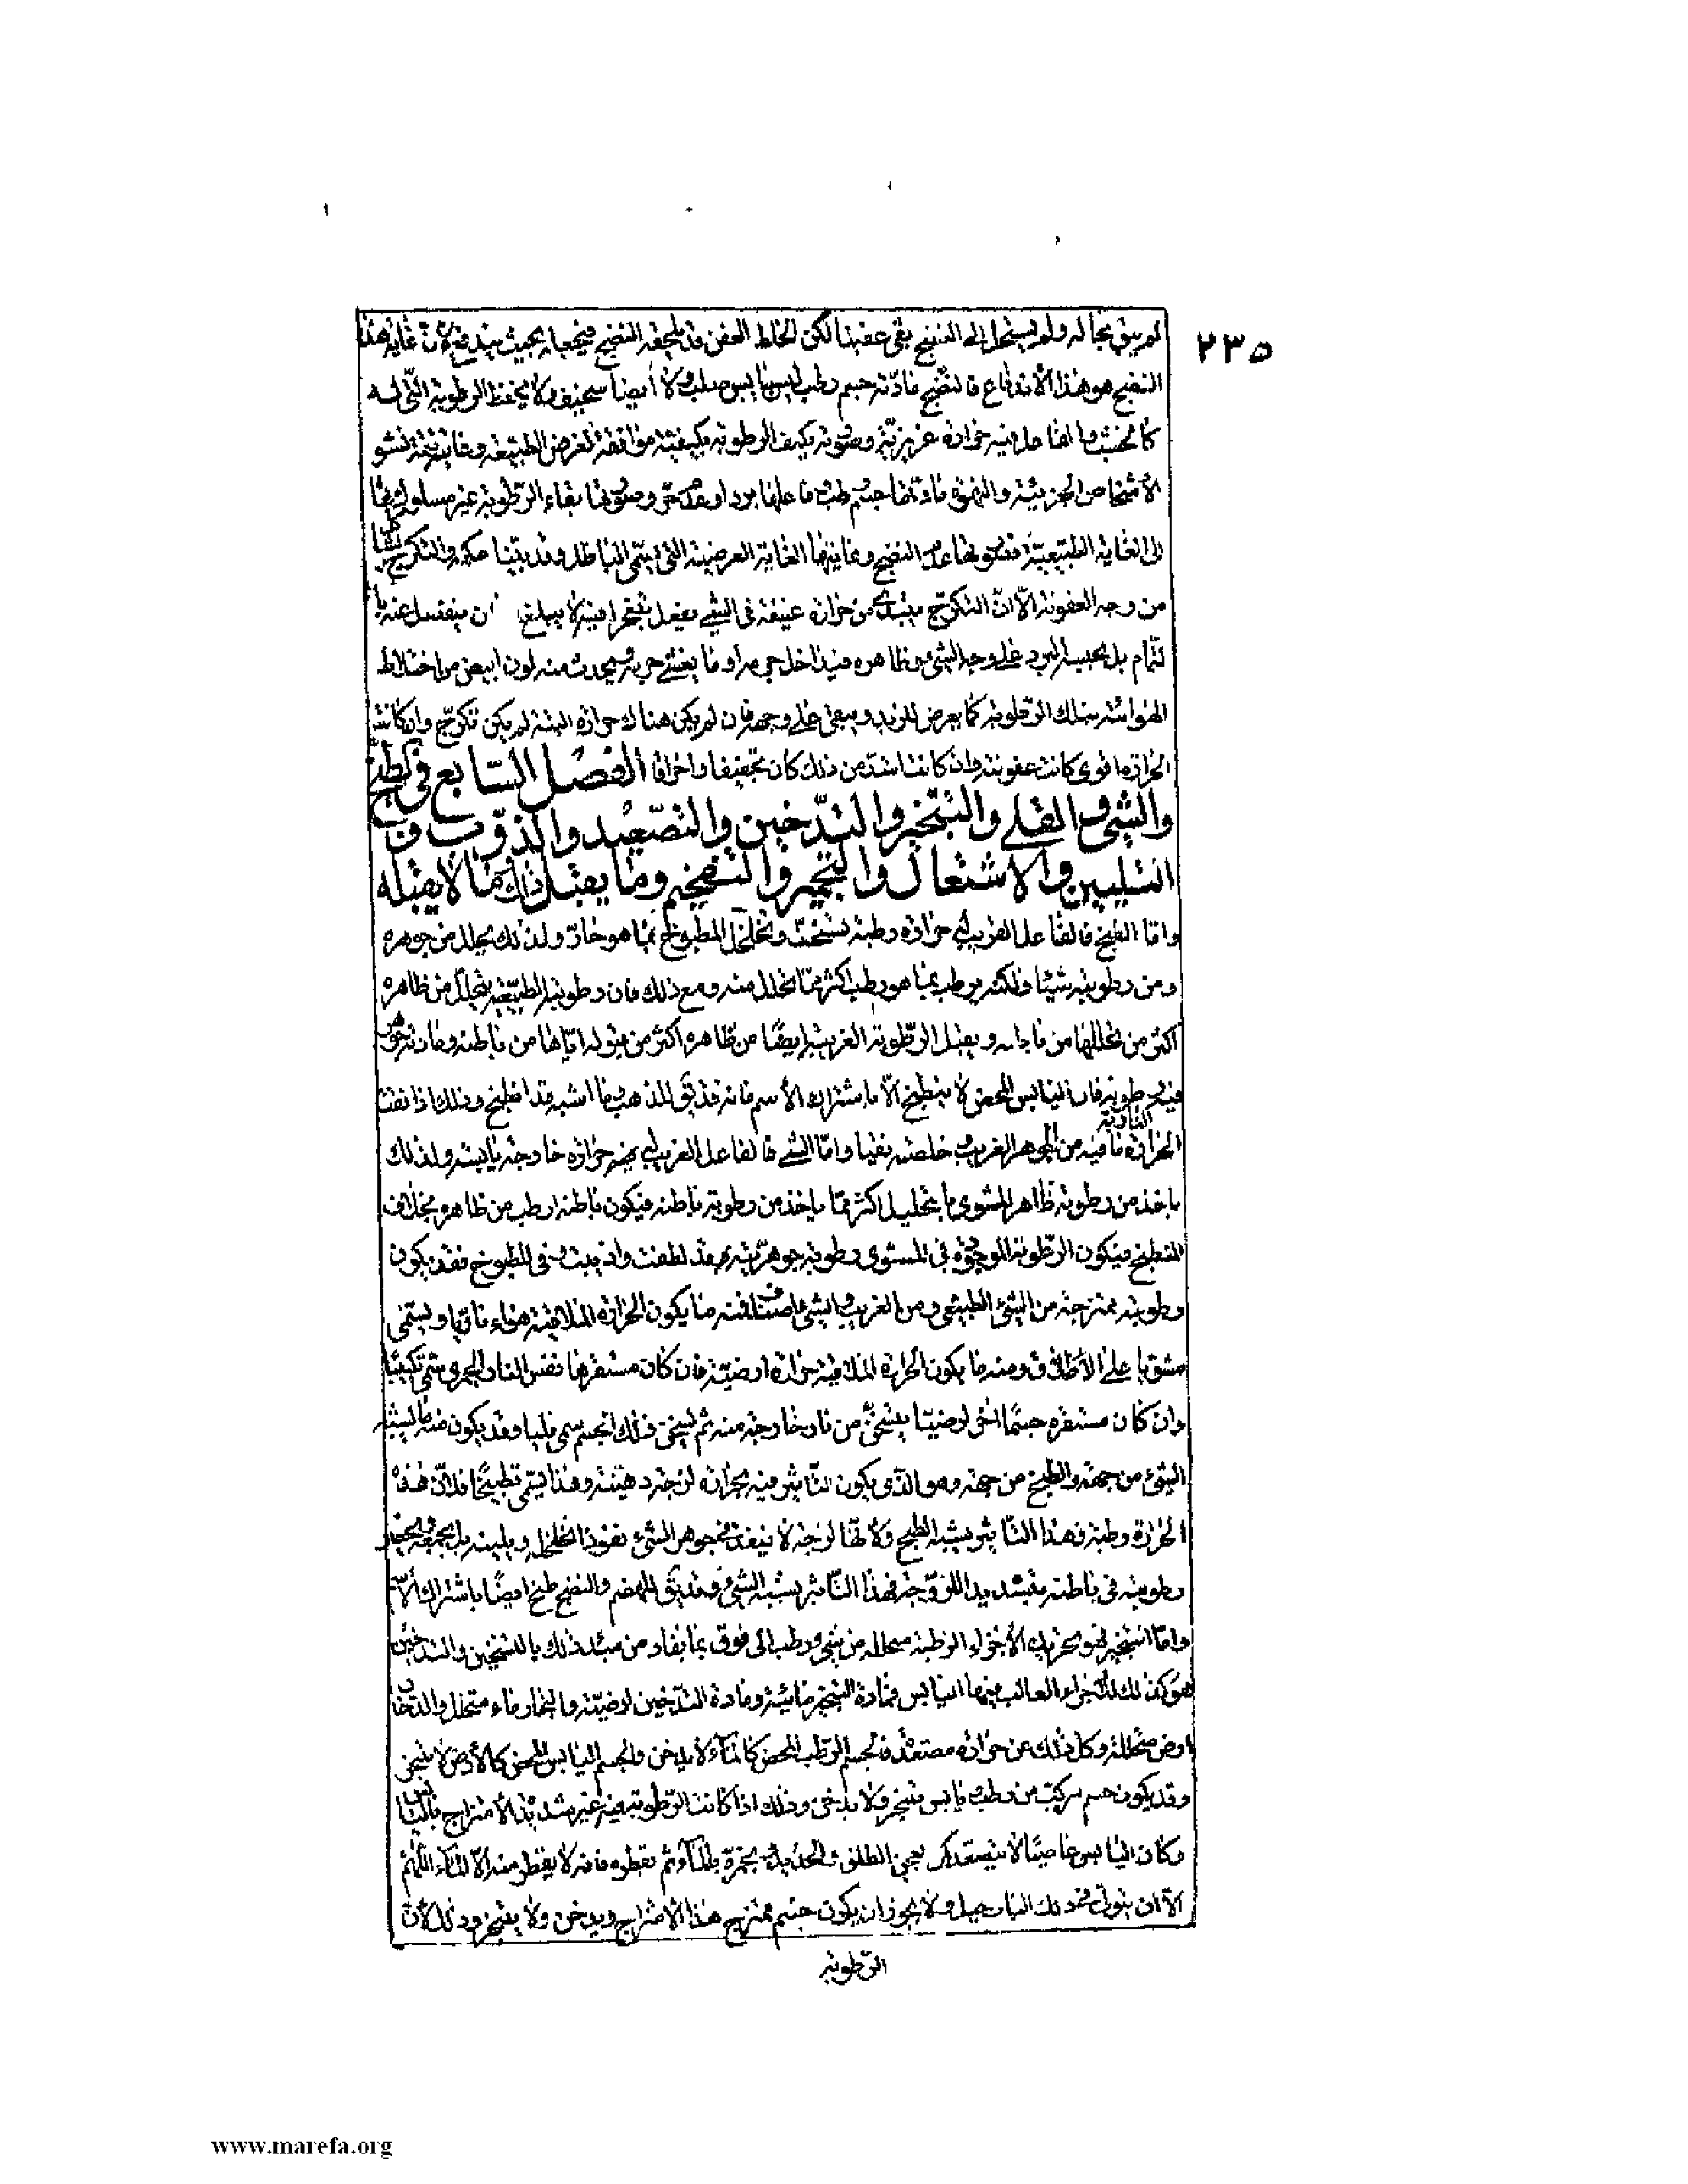 ٢٣٥
لم يبق بحاله ولم يستحل إلى النضج بقي عفينا لكن الخلط العفن قد يلحقه النضج فيجعله بحيث يندفع غاية هذا
النضج هو هذا الاندفاع فالنضج مادته جسم رطب ليس يابس صلب ولا أيضا سخيف ولا يحفظ الرطوبة التي له
كالخشب والفاعل فيه حرارة غريزية وصورته تكيف الرطوبة بكيفية موافقة لغرض الطبيعة وغايته تتمة نشو
الأشخاص الجزئية والنهوة مادتها جسم رطب فاعلها برد او عدم حر وصورتها بقاء الرطوبة غير مسلوك بها
الى الغاية الطبيعية فاعل النضج وغايتها الغاية العرضية التي تسمى الباطل وقد بينا حكمه والتكرج
من وجه العفونة الا ان التكرج يبتدئ من حرارة عفنة في الشيء تفعل تبخرا فيه لا يبلغ ان ينفصل عنه
بتمام بل يحبسه البرد على وجه الشيء وظاهره فيداخل جرمه او ما يغشى جرمه ويحدث منه لون ابيض من اختلاط
الهوائية بتلك الرطوبة كما يعرض للزبد ويبقى على وجهه فان لم يكن هناك حرارة البتة لم يكن تكرج وان كانت
الحرارة اقوى كانت عفونة وان كانت اشد من ذلك كان تجفيفا واحراقا الفصل السابع في الطبخ
والشي والقلي والتبخير والتدخين والتصعيد والذوب و
التليين والاشتعال والتجمير والتفحيم وما يقبل ذلك مما لا يقبله
واما الطبخ فالفاعل القريب له حرارة رطبة تسخن وتخلخل المطبوخ بما هو حار ولذلك يحلل من جوهره
ومن رطوبته شيئا ولكنه يرطب بما هو رطب اكثر مما تحلل منه ومع ذلك فان رطوبته الطبيعية تتحلل من ظاهره
اكثر من تحللها من داخله ويقبل الرطوبة الغريبة ايضا من ظاهره اكثر من قبوله اياها من باطنه ومادته جسم
فيه رطوبة فان اليابس المحض لا ينطبخ الا باشتراك الاسم فانه قد يق للذهب وما اشبه قد انطبخ وذلك اذا نفت
النارية
الحرارة ما فيه من الجوهر الغريب خلصته نقيا واما الشي فالفاعل القريب له حرارة خارجة يابسة ولذلك
ياخذ من رطوبة ظاهر المشوي بالتحليل اكثر مما ياخذ من رطوبة باطنه فيكون باطنه ارطب من ظاهره بخلاف
المنطبخ فيكون الرطوبة الموجودة في المشوي رطوبة جوهرية قد لطفت واذيبت وفي المطبوخ فقد يكون
رطوبته ممتزجة من الشيء الطبيعي ومن الغريب والشي اصناف فمنه ما يكون الحرارة الملاقية هواء ناريا ويسمى
مشويا على الاطلاق ومنه ما يكون الحرارة الملاقية حرارة ارضية فان كان مستقرها نفس النار الجمري سمي تكبيبا
وان كان مستقره جسما اخر ارضيا يسخن من نار خارجة منه ثم يسخن ذلك الجسم سمي قليا وقد يكون منه ما يشبه
الشيء من جهة والطبخ من جهة وهو الذي يكون التأثير فيه بحرارة لزجة دهنية وهذا يسمى تطجينا فلان هذه
الحرارة رطبة فهذا التأثير يشبه الطبخ ولانها لزجة لا ينفذ في جوهر الشيء نفوذا يخلخله ويلينه بل
رطوبته في باطنه بتشديد اللزوجة فهذا التأثير يشبه الشي وقد يق للهضم والنضج طبخ ايضا باشتراك الاسم
واما التبخير فهو تحريك الاجزاء الرطبة متحللة من شيء رطب الى فوق بما يفاد من مبدء ذلك بالتسخين والتدخين
هو كذلك للاجزاء الغالب فيها اليابس فمادة التبخير مائية ومادة التدخين ارضية والبخار ماء متحلل والدخان
ارض متحللة وكل ذلك عن حرارة مصعدة فالجسم الرطب المحض كالماء لا يدخن والجسم اليابس المحض كالأرض لا يتبخر
وقد يكون جسم مركب من رطب ويابس يتبخر ولا يدخن وذلك اذا كانت الرطوبة فيه غير شديدة الامتزاج باليابس
وكان اليابس عاصيا لا يتصعد كمن يعجن الطلق والحديد بالماء ثم يقطره فانه لا يقطر منه الا الماء اللهم
الا ان يتولى في ذلك الباب حيل ولا يجوز ان يكون جسم ممتزج هذا الامتزاج ويدخن ولا يتبخر وذلك لأن
الرطوبة
www.marefa.org